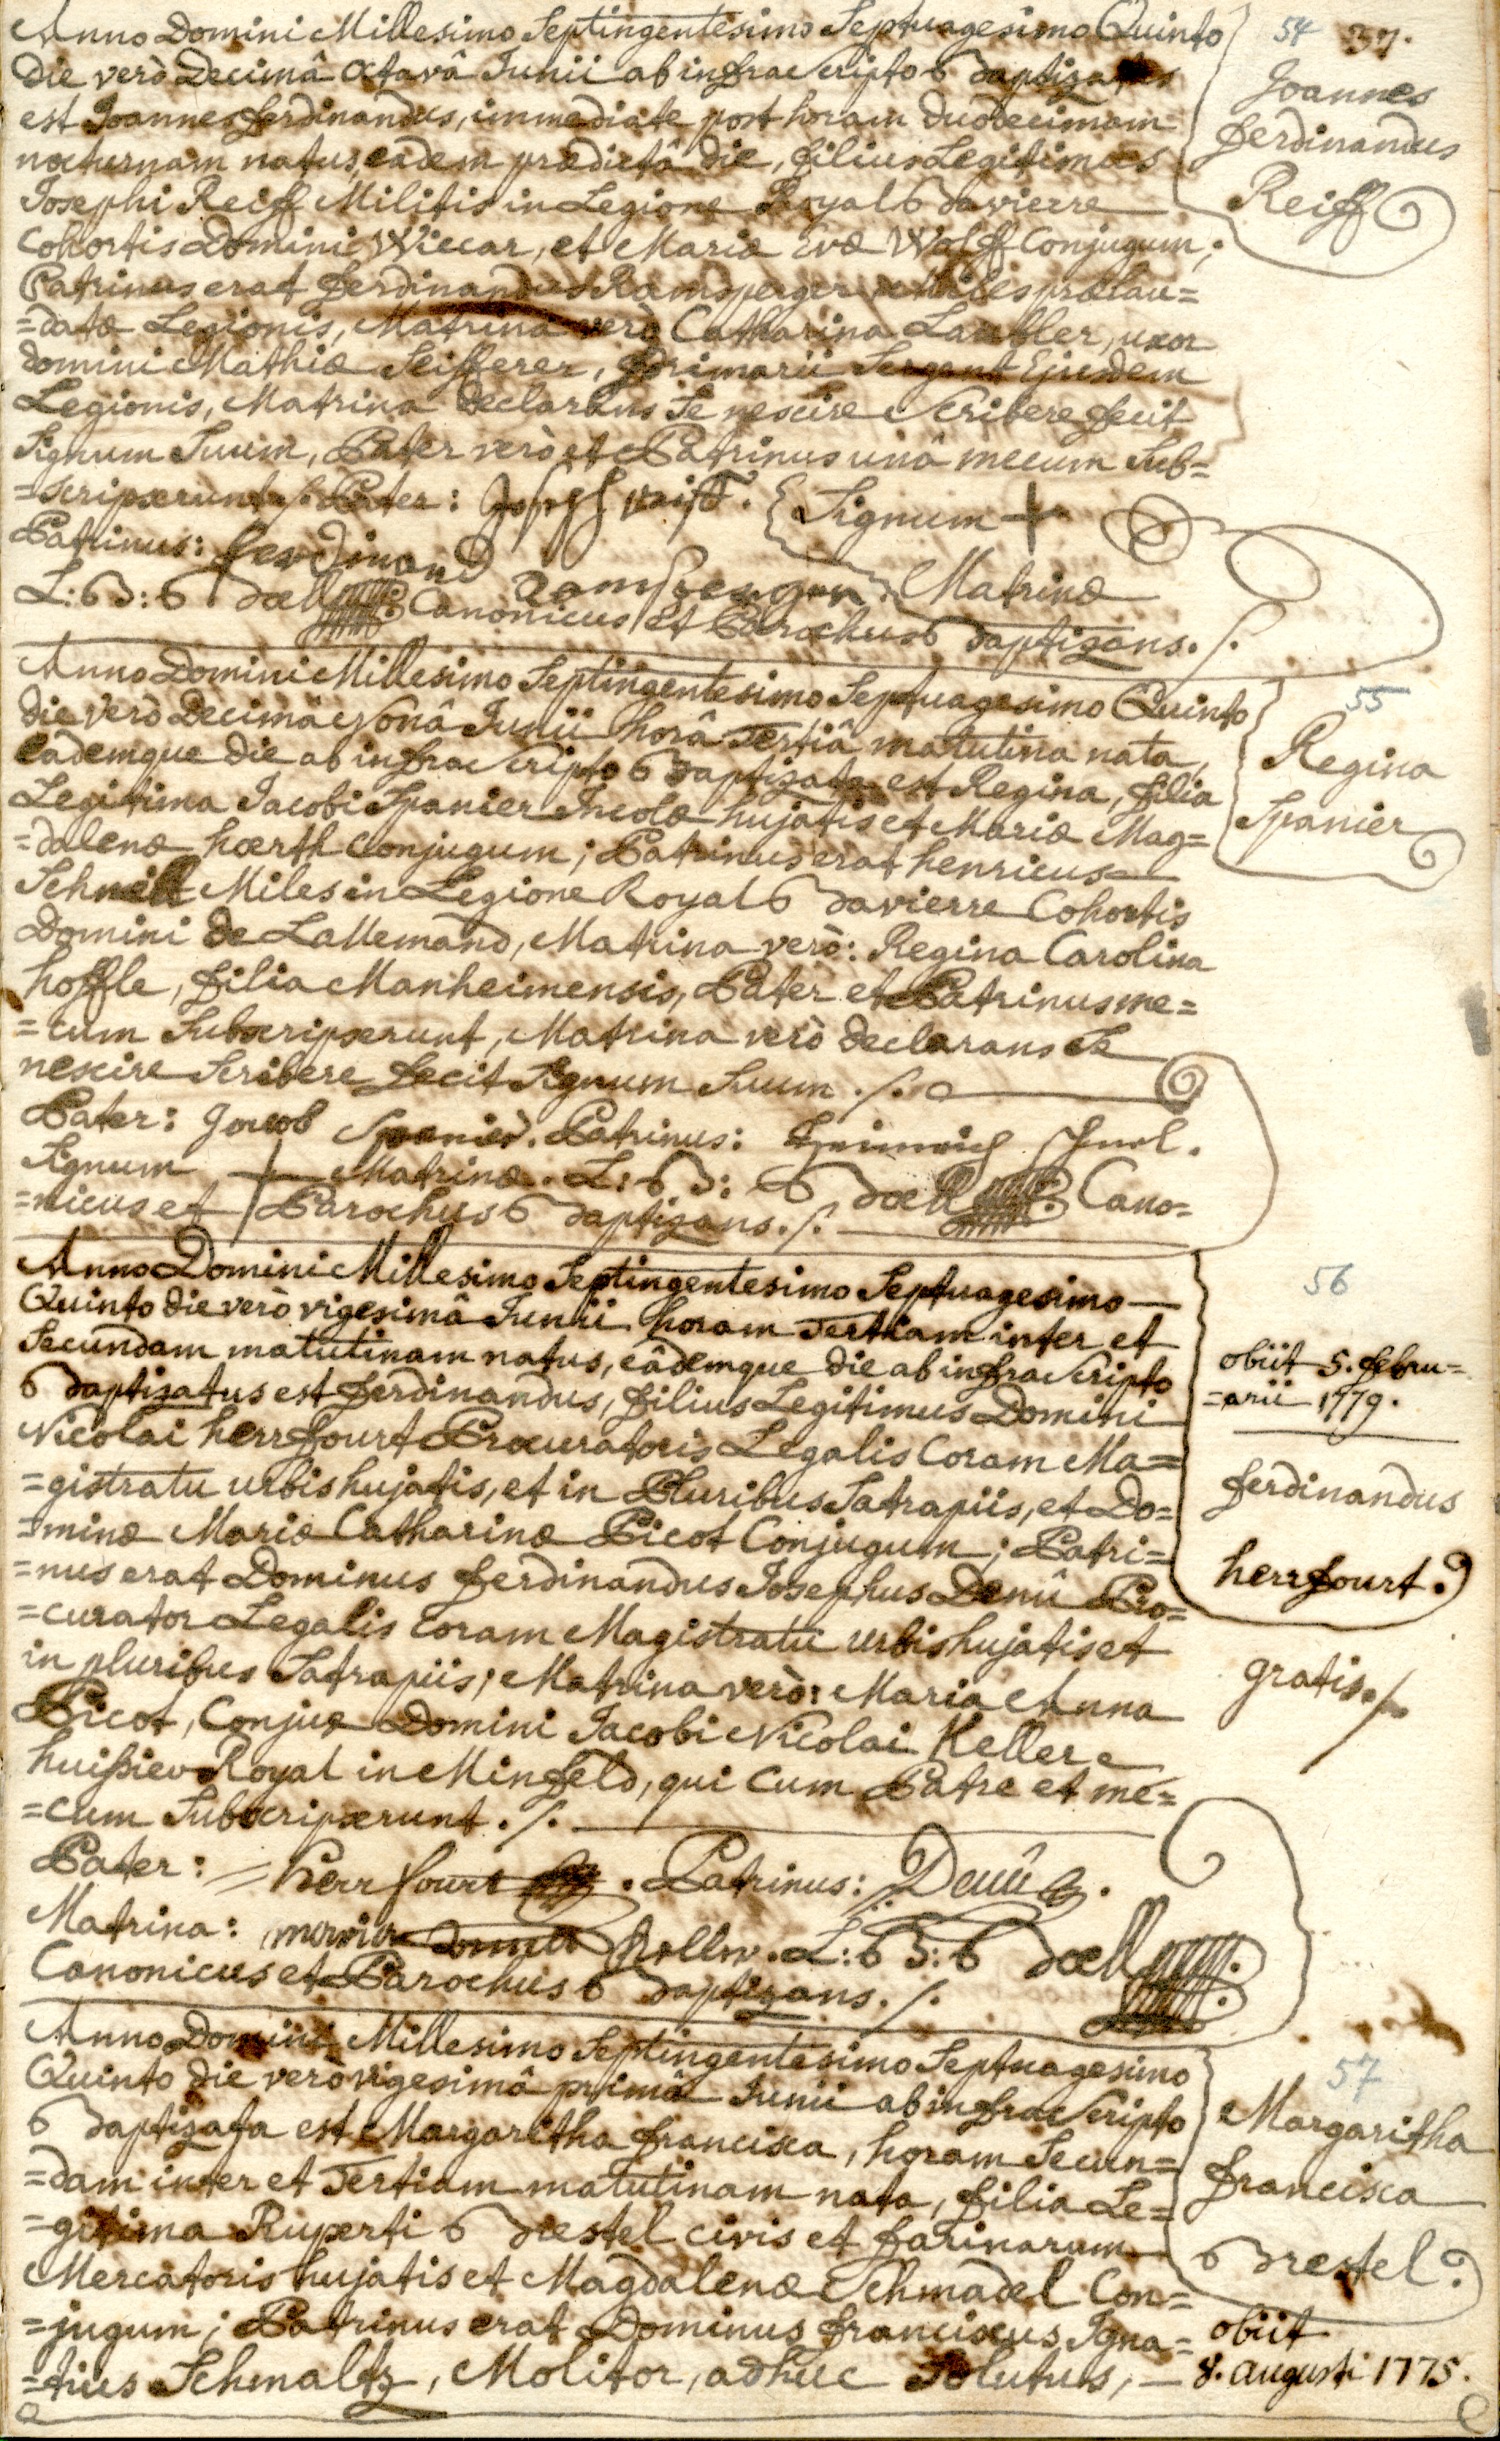 54 37.
Anno Domini Millesimo Septingentesimo Septuagesimo Quinto
die verò Decimâ Octavâ Junii ab infrascripto Baptizatus
est Joannes Ferdinandus, immediate post horam duodecimam
nocturnam natus, eâdem prædictâ die, filius Legitimus
Josephi Reiff Militis in Legione Royal Bavierre
Cohortis Domini Wiecar, et Mariæ Evæ Wolff Conjugum;
Patrinus erat Ferdinandus Ramsperger Miles prælau=
=datæ Legionis, Matrina verò Catharina Laubler, uxor
domini Mathiæ Seifferer, Primarii Sergent Ejusdem
Legionis, Matrina declarans Se nescire Scribere fecit
Signum Suum, Pater verò et Patrinus unâ mecum Sub=
=scripserunt ./. Pater: Joseph reiff. Signum +
Patrinus: ferdinand Ramsperger. Matrinæ
L: B: Bdoell Canonicus et Parochus Baptizans ./.
Joannes
Ferdinandus
Reiff
Anno Domini Millesimo Septingentesimo Septuagesimo Quinto
die verò Decimâ Nonâ Junii horâ Tertiâ matutina nata,
eademque die ab infrascripto Baptizata est Regina, filia
Legitima Jacobi Spanier Incolæ hujatis et Mariæ Mag=
=dalenæ hoerth Conjugum; Patrinus erat henricus
Miles in Legione Royal Bavierre Cohortis
Domini de Lallemand, Matrina verò: Regina Carolina
hoffle, filia Manheimensis, Pater et Patrinus me=
=cum Subscripserunt, Matrina verò declarans Se
nescire Scribere fecit Signum Suum ./.
Pater: Jacob Spanier. Patrinus: Heinrich
Signum + Matrinæ. L: B: Bdoell Cano=
=nicus et Parochus Baptizans ./.
55
Regina
Spanier
Anno Domini Millesimo Septingentesimo Septuagesimo
Quinto die verò vigesimâ Junii horam Tertiam inter et
Secundam matutinam natus, eâdemque die ab infrascripto
Baptizatus est Ferdinandus, filius Legitimus Domini
Nicolai herrfourt Procuratoris Legalis Coram Ma=
=gistratu urbis hujatis, et in Pluribus Satrapiis, et Do=
=minæ Mariæ Catharinæ Picot Conjugum; Patri=
=nus erat Dominus Ferdinandus Josephus Denû Pro=
=curator Legalis Coram Magistratu urbis hujatis et
in pluribus Satrapiis; Matrina verò: Maria Anna
Picot, Conjux Domini Jacobi Nicolai Keller
huissier Royal in Minfeld, qui Cum Patre et me=
=cum Subscripserunt ./.
Pater: Herrfourt. Patrinus: Denû.
Matrina: L: B: Bdoell
Canonicus et Parochus Baptizans ./.
56
obiit 5. febru=
=arii 1779.
Ferdinandus
herrfourt.
gratis ./.
Anno Domini Millesimo Septingentesimo Septuagesimo
Quinto die verò vigesimâ primâ Junii ab infrascripto
Baptizata est Margaritha Francisca, horam Secun=
=dam inter et Tertiam matutinam nata, filia Le=
=gitima Ruperti Brestel civis et farinarum
Mercatoris hujatis et Magdalenæ Schmadel Con=
=jugum; Patrinus erat Dominus Franciscus Igna=
=tius Schmaltz, Molitor, adhuc Solutus,
57
Margaritha
Francisca
Brestel
obiit
8. augusti 1775.